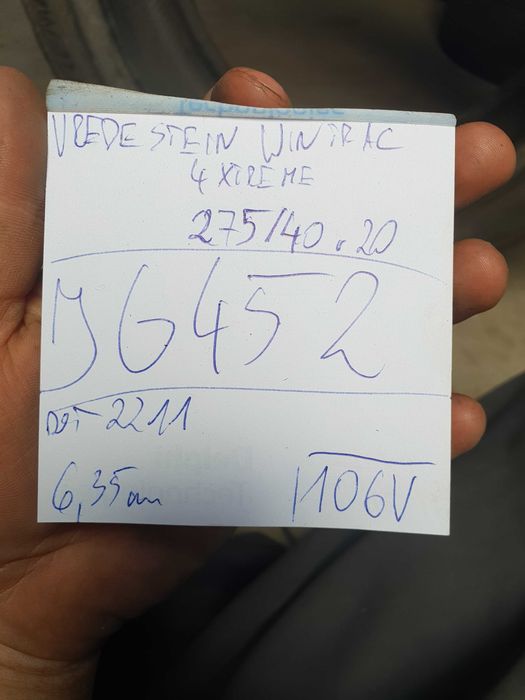 VREDESTEIN WINTRAC
4 XTREME
275/40.20
DOT 2211
6,35mm
106V